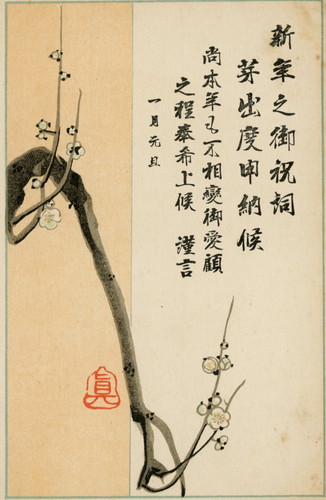 新年之御祝詞
芽出度申納候
尚本年も不相變御愛顧
之程奉希上候 謹言
一月元旦
眞